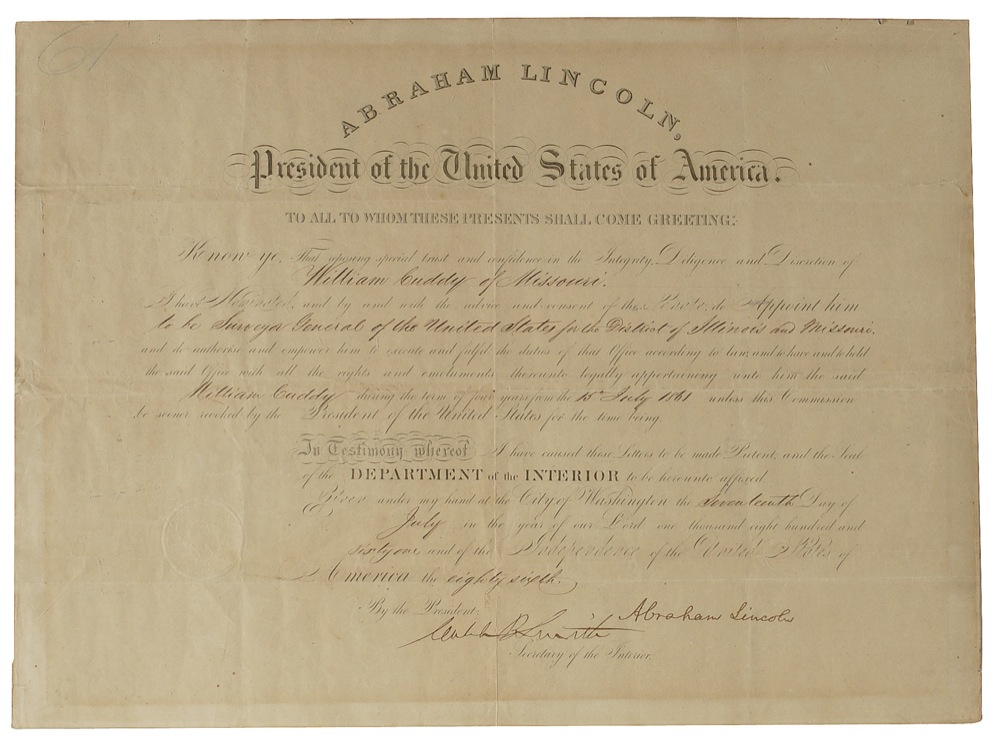 61
ABRAHAM LINCOLN,
President of the United States of America.
TO ALL TO WHOM THESE PRESENTS SHALL COME GREETING:
Know ye, That reposing special trust and confidence in the Integrity, Diligence and Discretion of
William Cuddy of Missouri.
I have Nominated, and by and with the advice and consent of the Senate, do Appoint him
to be Surveyor General of the United States for the District of Illinois and Missouri,
and do authorise and empower him to execute and fulfil the duties of that Office according to law, and to have and to hold
the said Office with all the rights and emoluments thereunto legally appertaining unto him the said
William Cuddy during the term of four years from the 15 July 1861 unless this Commission
be sooner revoked by the President of the United States for the time being.
In Testimony whereof I have caused these Letters to be made Patent, and the Seal
of the DEPARTMENT of the INTERIOR to be hereunto affixed
Given under my hand at the City of Washington the Seventeenth Day of
July in the year of our Lord one thousand eight hundred and
sixty one and of the Independence of the United States of
America the eighty sixth.
By the President: Abraham Lincoln
Caleb B Smith
Secretary of the Interior.